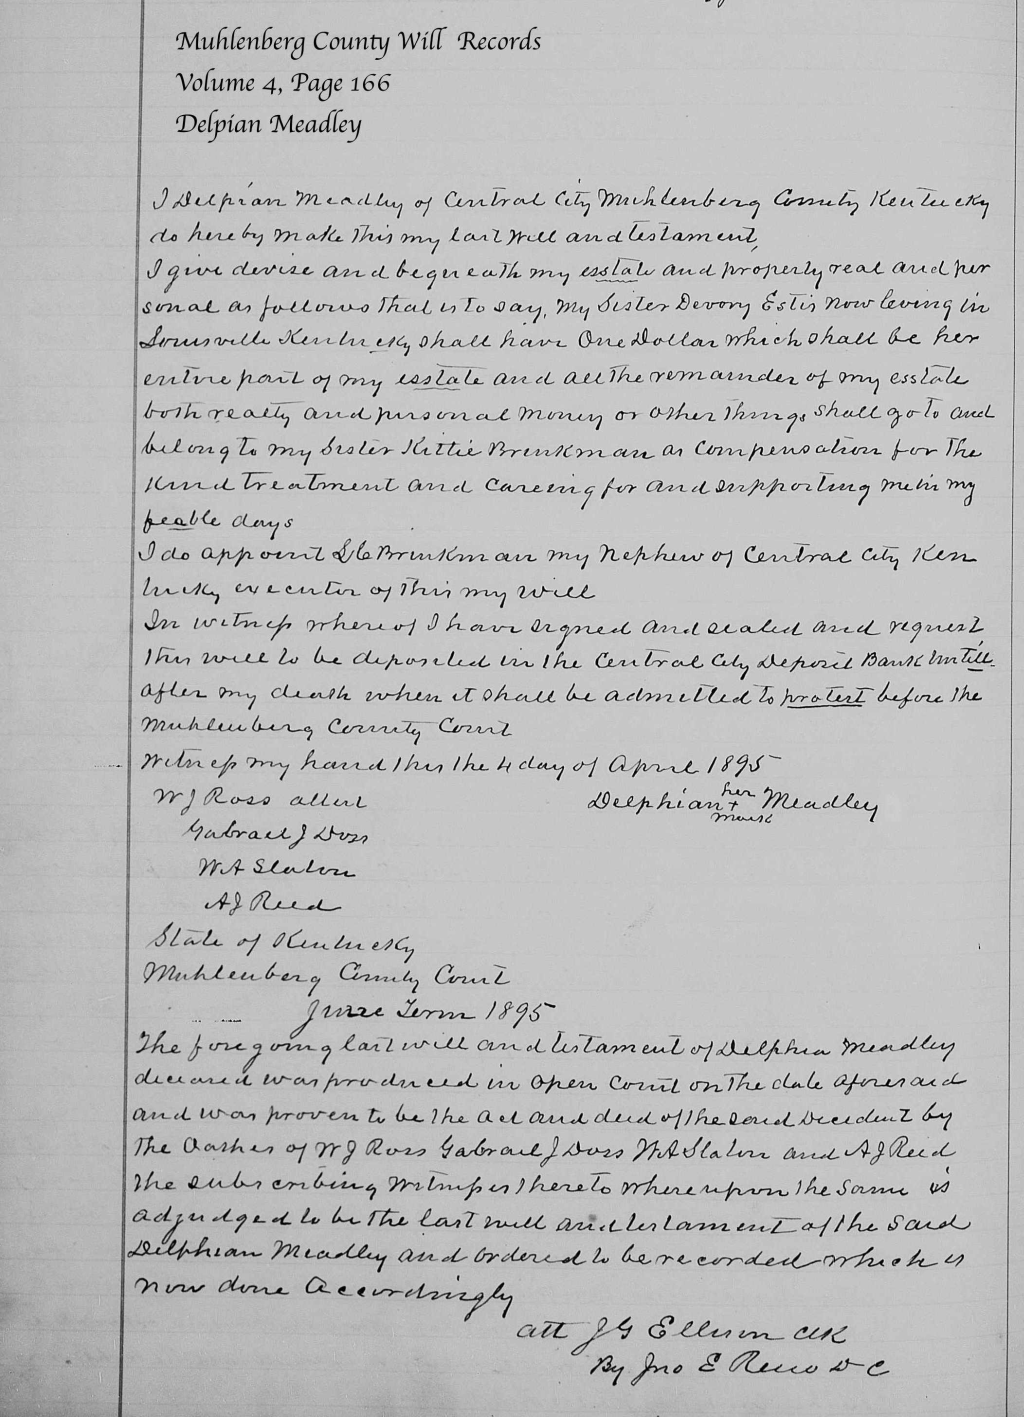 Muhlenberg County Will Records
Volume 4, Page 166
Delpian Meadley
I Delpian Meadley of Central City Muhlenberg County Kentucky
do hereby make this my last will and testament,
I give devise and bequeath my esstate and property real and per
sonal as follows that is to say, my Sister Devory Estis now leving in
Louisville Kentucky shall have One Dollar which shall be her
entire part of my esstate and all the remainder of my esstate
both realty and personal money or other things shall go to and
belong to my Sister Kittie Brinkman as compensation for the
kind treatment and careing for and supporting me in my
feable days
I do appoint Brinkman my Nephew of Central City Ken
tucky executor of this my will
In witness whereof I have signed and sealed and request
this will to be deposited in the Central City Deposit Bank Untill
after my death when it shall be admitted to protest before the
Muhlenberg County Court
Witness my hand this the 4 day of April 1895
W J Ross attest
Delphian her + mark Meadley
Gabrael J Doss
W A Slaton
A J Reed
State of Kentucky
Muhlenberg County Court
June Term 1895
The foregoing last will and testament of Delphia Meadley
deceased was produced in open Court on the date aforesaid
and was proven to be the act and deed of the said Decedent by
the Oathes of W J Ross Gabrael J Doss W A Slaton and A J Reed
the subscribing Witnesses thereto whereupon the same is
adjudged to be the last will and testament of the said
Delphian Meadley and ordered to be recorded which is
now done Accordingly
Att J G Ellison Clk
By Jno E Reno D C